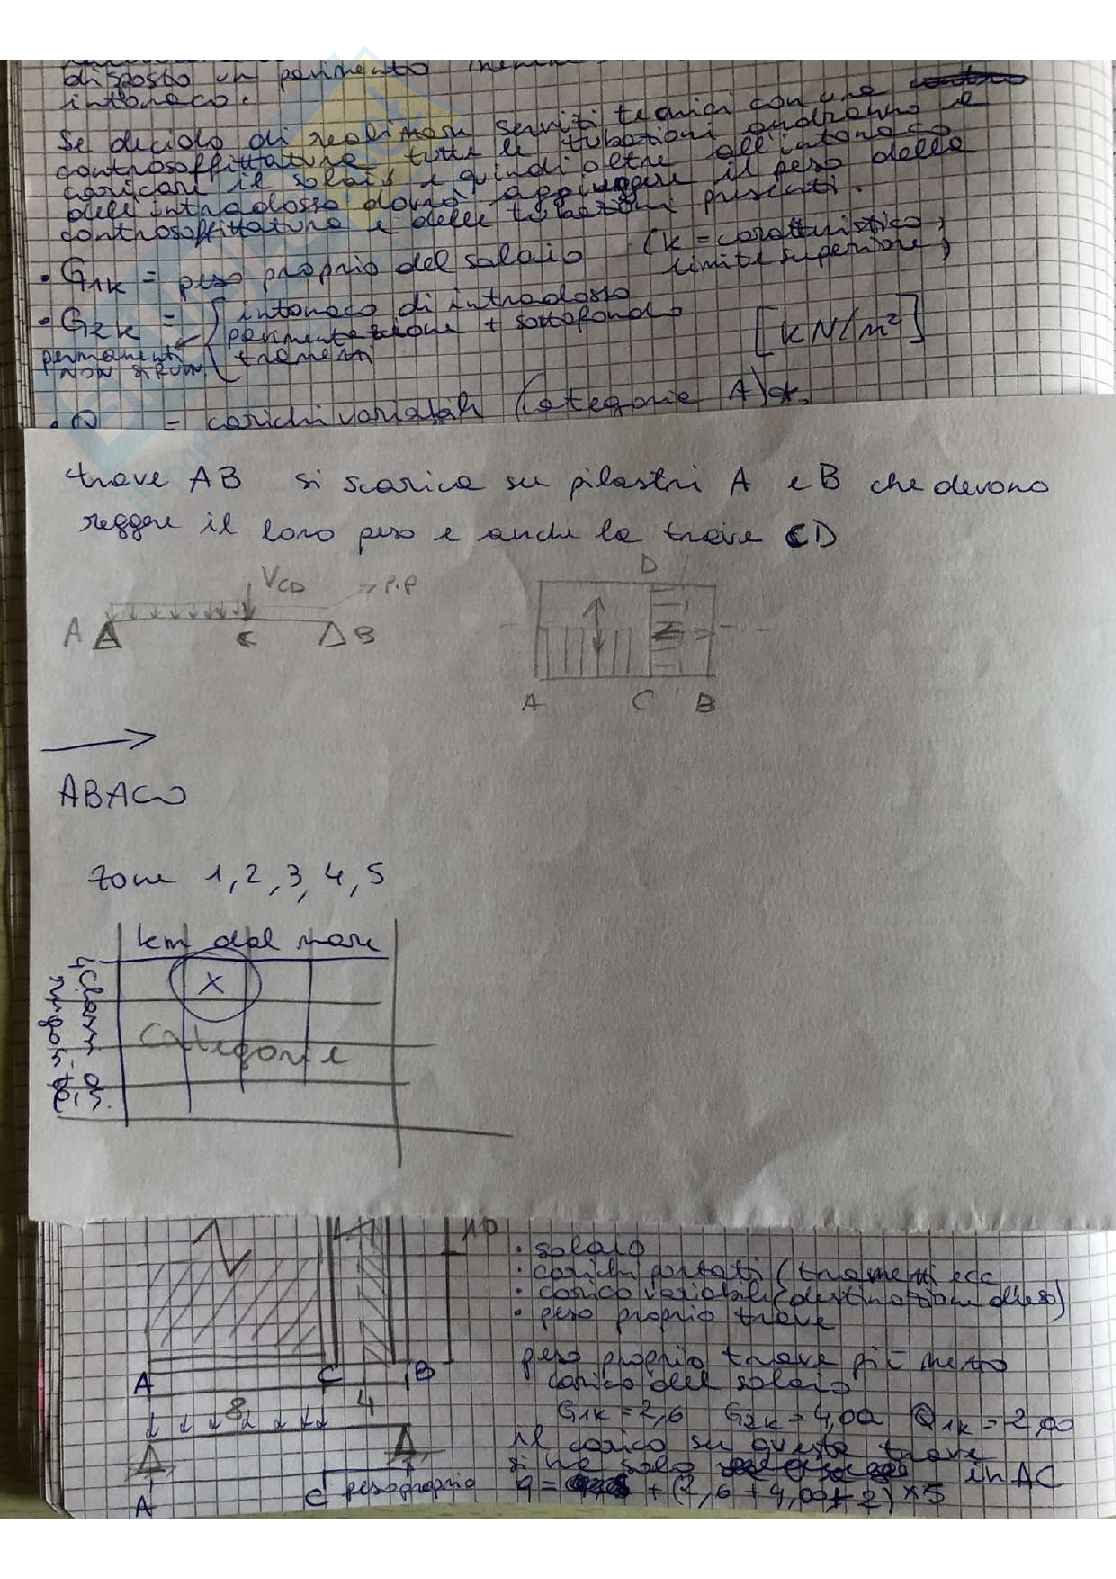 disposto un pavimento
intonaco.
Se decido di realizzare servizi tecnici con una
controsoffittatura tutte le tubazioni andranno a
caricare il solaio e quindi oltre all'intonaco
dell'intradosso dovrò aggiungere il peso della
controsoffittatura e delle tubazioni presenti.
• G1K = peso proprio del solaio (k = caratteristico,
limite superiore)
• G2K = intonaco di intradosso
pavimentazione + sottofondo
tramezzi
[kN/m²]
permanenti
NON STRUTT.
• Q = carichi variabili (categoria A)
trave AB si scarica su pilastri A e B che devono
reggere il loro peso e anche la trave CD
VCD
P.P
A
C
B
D
A
C
B
ABACO
zone 1,2,3,4,5
km dal mare
4 Classi di
rugosità
X
Categorie
• solaio
• carichi portati (tramezzi ecc
• carico variabile (destinazione d'uso)
• peso proprio trave
peso proprio trave più mezzo
carico del solaio
A
C
B
8
4
G1K = 2,6 G2K = 4,00 Q1K = 2,00
il carico su questa trave
si ha solo in AC
A
C
peso proprio
q = + (2,6 + 4,00 + 2) × 5